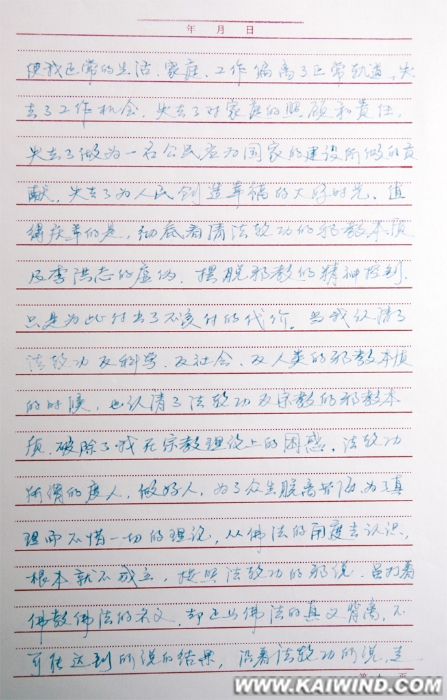 年 月 日
使我正常的生活、家庭、工作偏离了正常轨道，失
去了工作机会，失去了对家庭的照顾和责任，
失去了做为一名公民应为国家的建设所做的贡
献，失去了为人民创造幸福的大好时光。值
得庆幸的是，彻底看清法轮功的邪教本质
及李洪志的虚伪，摆脱邪教的精神控制，
只是为此付出了不该付的代价。当我认清了
法轮功反科学、反社会、反人类的邪教本质
的时候，也认清了法轮功反宗教的邪教本
质，破除了我在宗教理论上的困惑。法轮功
所谓的度人，做好人，为了众生脱离苦海，为了真
理而不惜一切的理论，从佛法的角度去认识，
根本就不成立，按照法轮功的邪说，虽打着
佛教佛法的名义，却正与佛法的真义背离，不
可能达到所说的结果，沿着法轮功所说，走
第 页
WWW.KAIWIND.COM